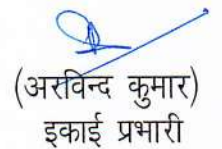 (अरविन्द कुमार)
इकाई प्रभारी